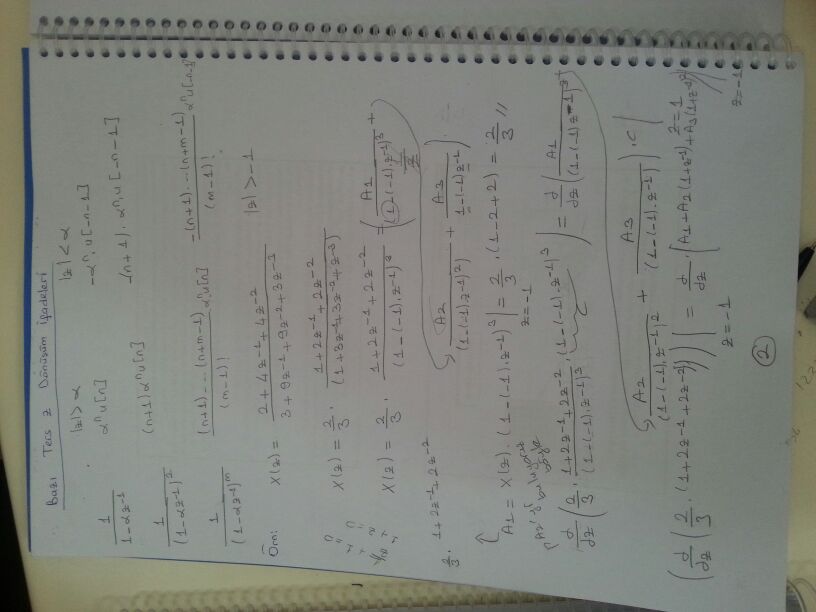 Bazı Ters z Dönüşüm İfadeleri
|z| > α |z| < α
1/(1-αz⁻¹) αⁿu[n] -αⁿ.u[-n-1]
1/(1-αz⁻¹)² (n+1)αⁿu[n] -(n+1).αⁿ.u[-n-1]
1/(1-αz⁻¹)ᵐ (n+1)...(n+m-1)/(m-1)! αⁿu[n] -(n+1)...(n+m-1)/(m-1)! αⁿu[-n-1]
Örn: X(z) = (2+4z⁻¹+4z⁻²)/(3+9z⁻¹+9z⁻²+3z⁻³) |z| > -1
X(z) = 2/3 . (1+2z⁻¹+2z⁻²)/(1+3z⁻¹+3z⁻²+z⁻³)
X(z) = 2/3 . (1+2z⁻¹+2z⁻²)/(1-(-1).z⁻¹)³ = (A1/(1-(-1).z⁻¹)³ +
A2/(1-(-1).z⁻¹)² + A3/(1-(-1)z⁻¹)).
2/3 . 1+2z⁻¹+2z⁻²
A1 = X(z).(1-(-1).z⁻¹)³ | z=-1 = 2/3 .(1-2+2) = 2/3 //
d/dz (2/3 . (1+2z⁻¹+2z⁻²)/(1-(-1).z⁻¹)³ .(1-(-1).z⁻¹)³) = d/dz (A1/(1-(-1)z⁻¹)³ +
A2/(1-(-1).z⁻¹)² + A3/(1-(-1).z⁻¹)).C |
(d/dz (2/3 .(1+2z⁻¹+2z⁻²))) | z=-1 = d/dz .[A1+A2(1+z⁻¹)+A3(1+z⁻¹)²] | z=-1
2